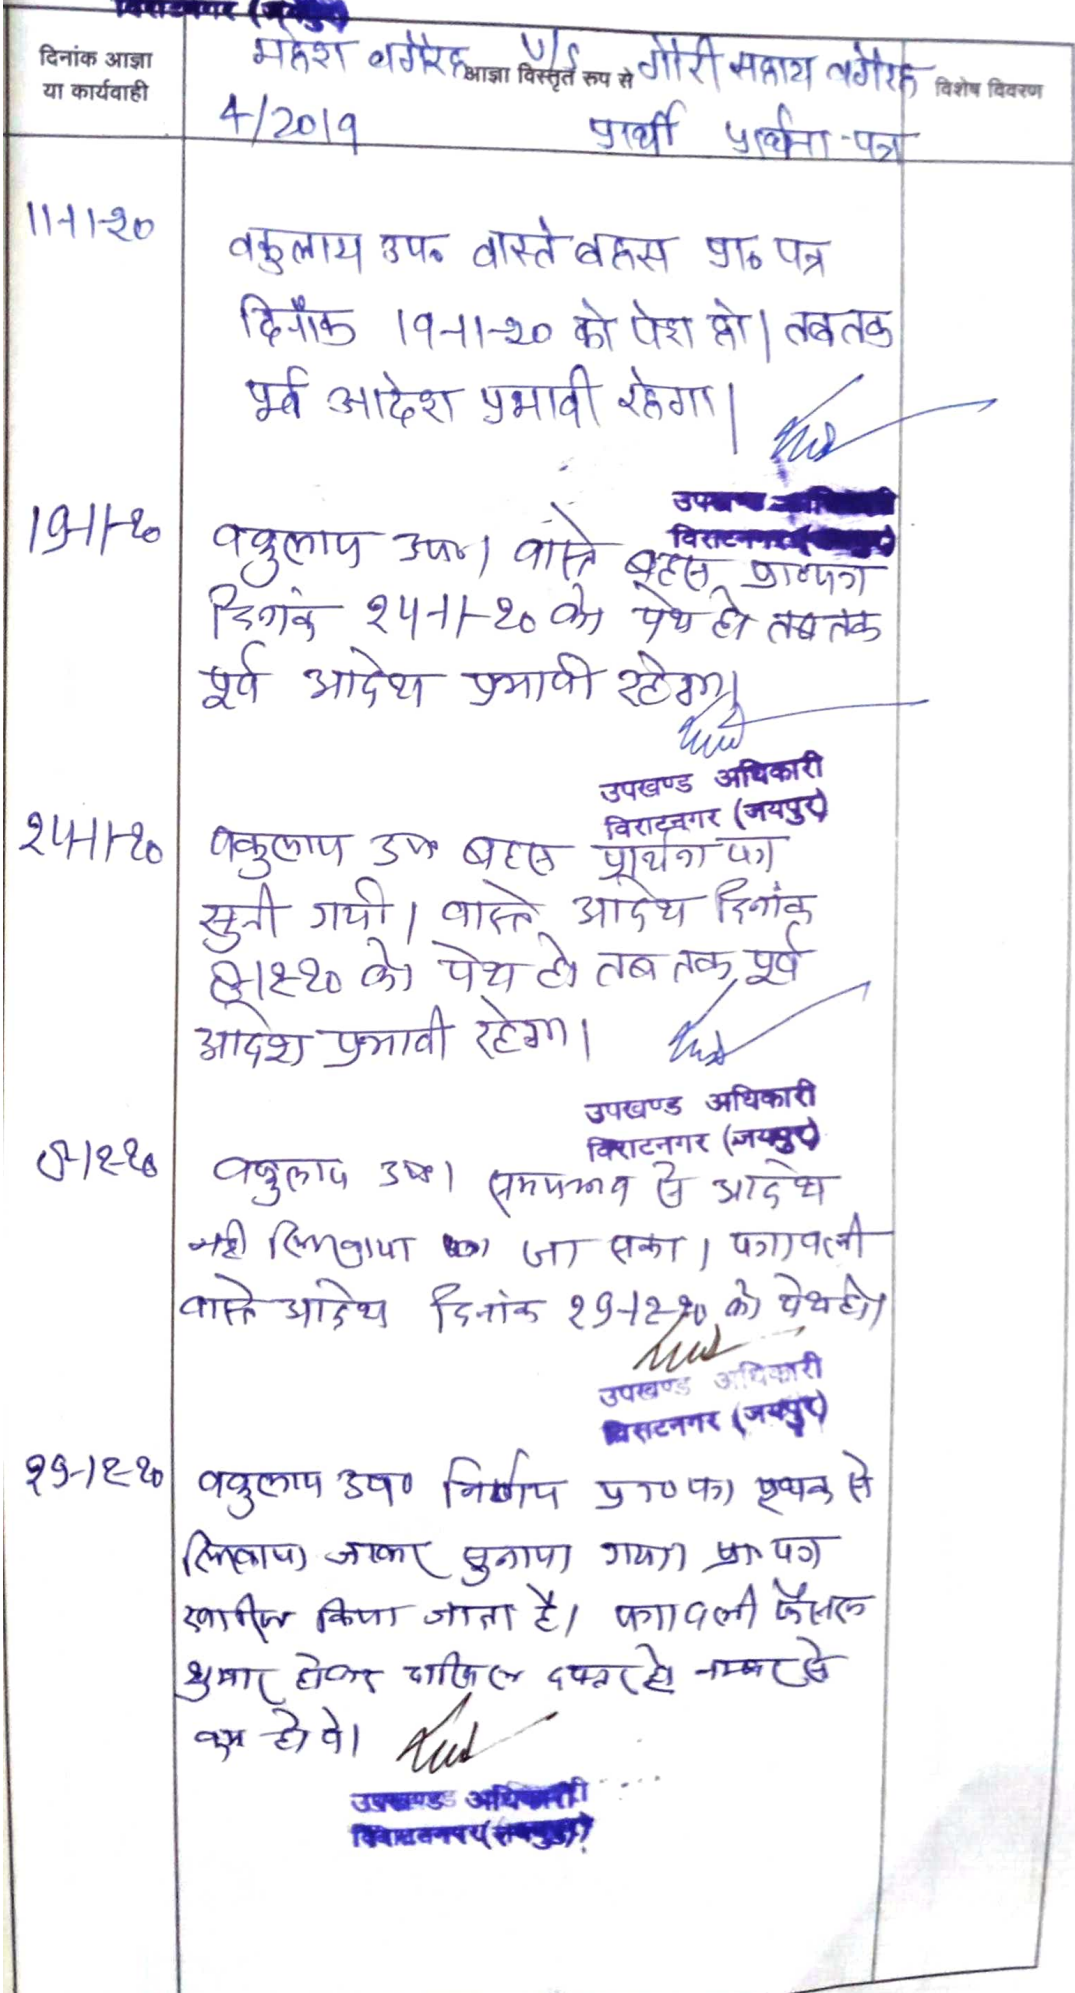 विराटनगर (जयपुर)
दिनांक आज्ञा
या कार्यवाही
महेश वगैरह v/s गौरी सहाय वगैरह
आज्ञा विस्तृत रुप से
विशेष विवरण
4/2019 प्रार्थी प्रार्थना-पत्र
11-11-20
वकुलाय उप० वास्ते बहस प्रा० पत्र
दिनाँक 19-11-20 को पेश हो। तब तक
पूर्व आदेश प्रभावी रहेगा।
उपखण्ड अधिकारी
विराटनगर (जयपुर)
19-11-20
वकुलाय उप०। वास्ते बहस प्रा०पत्र
दिनांक 24-11-20 को पेश हो तब तक
पूर्व आदेश प्रभावी रहेगा।
उपखण्ड अधिकारी
विराटनगर (जयपुर)
24-11-20
वकुलाय उप० बहस प्रार्थना पत्र
सुनी गयी। वास्ते आदेश दिनांक
8-12-20 को पेश हो तब तक पूर्व
आदेश प्रभावी रहेगा।
उपखण्ड अधिकारी
विराटनगर (जयपुर)
8-12-20
वकुलाय उप०। समयाभाव से आदेश
नही लिखाया जा सका। पत्रावली
वास्ते आदेश दिनांक 29-12-20 को पेश हो।
उपखण्ड अधिकारी
विराटनगर (जयपुर)
29-12-20
वकुलाय उप० निर्णय प्रा० पत्र पृथक से
लिखाया जाकर सुनाया गया। प्रा पत्र
खारीज किया जाता है। पत्रावली फैसल
शुमार होकर दाखिल दफ्तर हो नम्बर से
कम होवे।
उपखण्ड अधिकारी
विराटनगर (जयपुर)